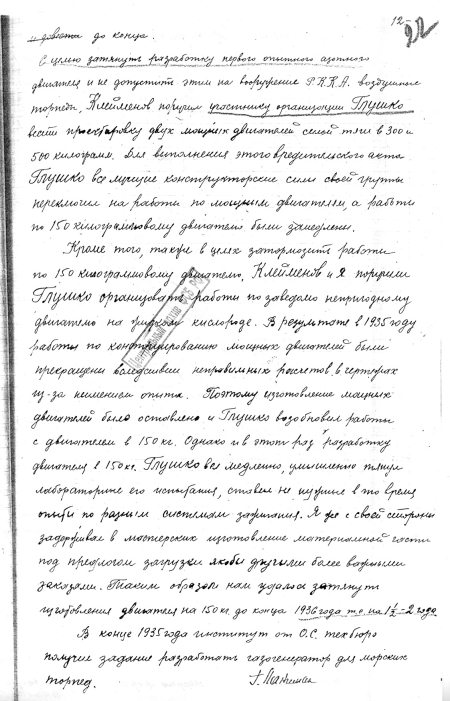 12-
22
и довать до конца.
С целью затянуть разработку первого опытного азотного
двигателя и не допустить этим на вооружение Р.К.К.А. воздушные
торпеды, Клейменов поручил участнику организации Глушко
вести проектировку двух мощных двигателей силой тяги в 300 и
500 килограмм. Для выполнения этого вредительского акта
Глушко все лучшие конструкторские силы своей группы
переключил на работы по мощным двигателям, а работы
по 150 килограммовому двигателю были замедлены.
Кроме того, также в целях затормозить работы
по 150 килограммовому двигателю, Клейменов и я поручили
Глушко организовать работы по заведомо непригодному
двигателю на жидком кислороде. В результате в 1935 году
работы по конструированию мощных двигателей были
прекращены вследствии неправильных расчетов, в чертежах
из-за неимением опыта. Поэтому изготовление мощных
двигателей было оставлено и Глушко возобновил работы
с двигателем в 150 кг. Однако и в этот раз разработку
двигателя в 150 кг. Глушко вел медленно, умышленно тянул
лабораторные его испытания, ставил не нужные в то время
опыты по разным системам зажигания. Я же с своей стороны
задерживал в мастерских изготовление материальной части
под предлогом загрузки якобы другими более важными
заказами. Таким образом нам удалось затянуть
изготовления двигателя на 150 кг. до конца 1936 года т.е. на 1½-2 года.
В конце 1935 года институт от О.С. техбюро
получил задание разработать газогенератор для морских
торпед. Г. Лангемак
Центральный архив ФСБ РФ